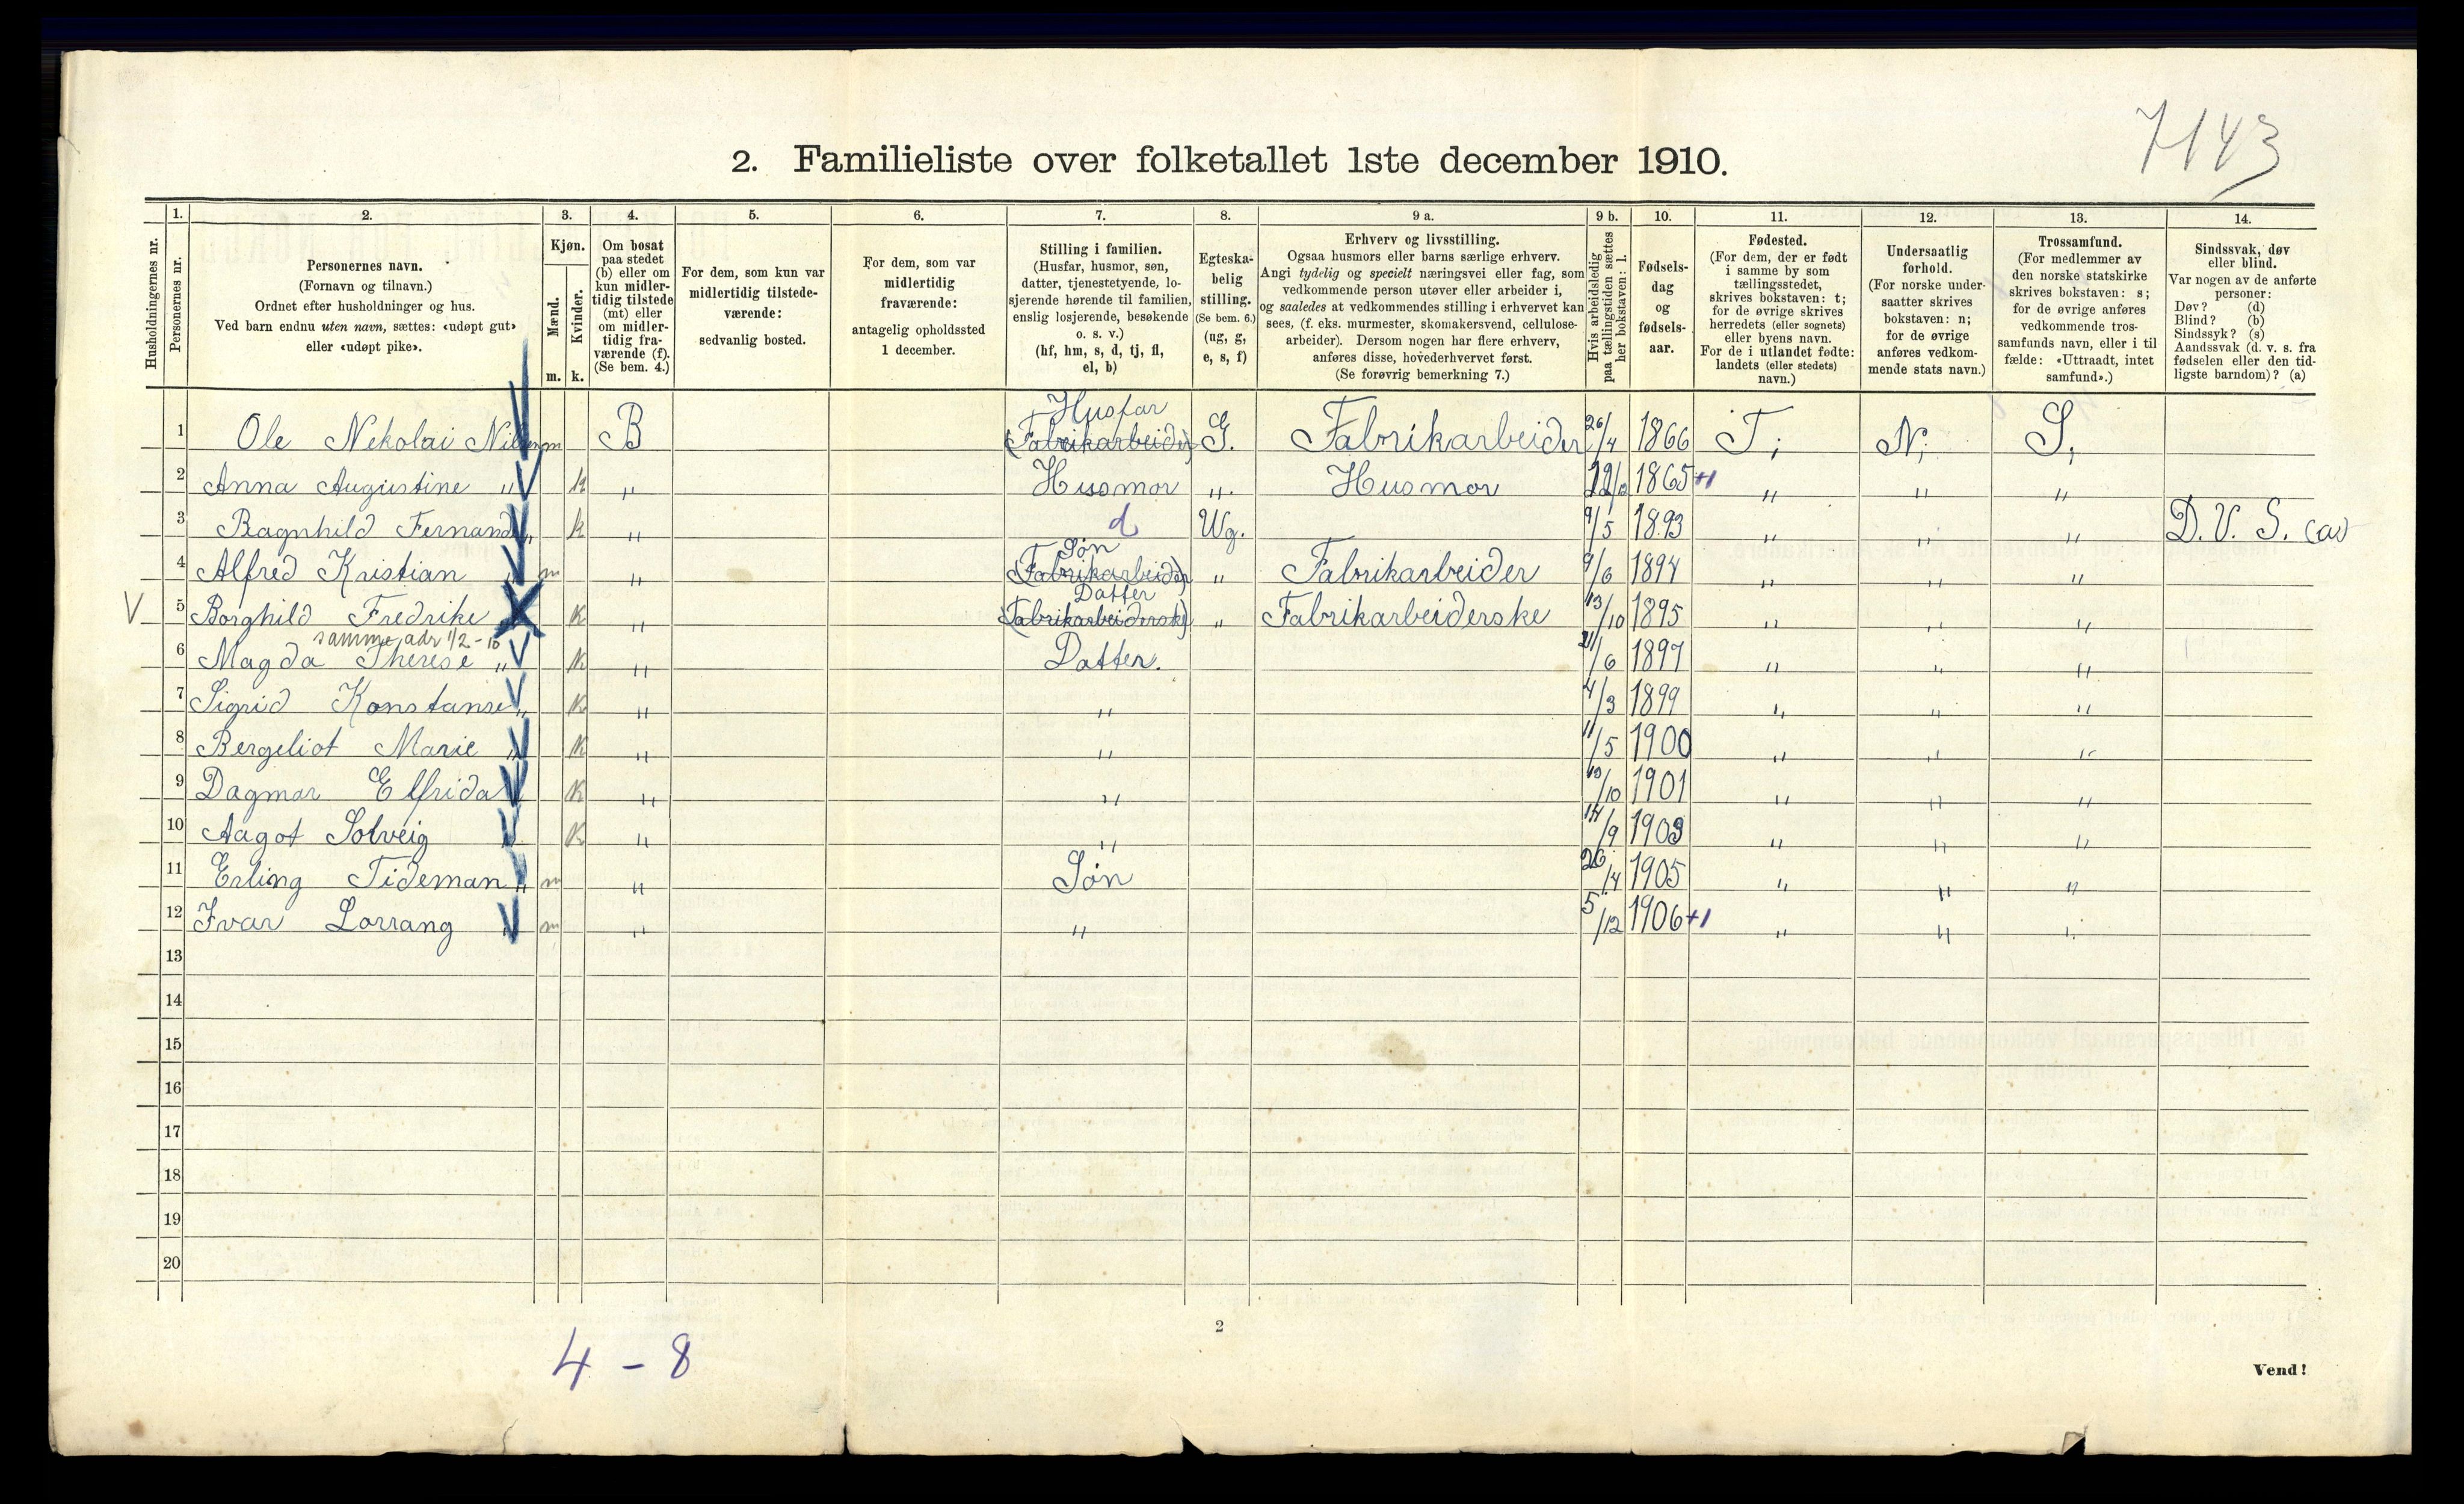 7143
2. Familieliste over folketallet 1ste december 1910.
Husholdningernes nr.
1. Personernes nr.
2. Personernes navn.
(Fornavn og tilnavn.)
Ordnet efter husholdninger og hus.
Ved barn endnu uten navn, sættes: «udøpt gut»
eller «udøpt pike».
3. Kjøn.
Mænd. Kvinder.
m. k.
4. Om bosat
paa stedet
(b) eller om
kun midler-
tidig tilstede
(mt) eller
om midler-
tidig fra-
værende (f).
(Se bem. 4.)
5. For dem, som kun var
midlertidig tilstede-
værende:
sedvanlig bosted.
6. For dem, som var
midlertidig
fraværende:
antagelig opholdssted
1 december.
7. Stilling i familien.
(Husfar, husmor, søn,
datter, tjenestetyende, lo-
sjerende hørende til familien,
enslig losjerende, besøkende
o. s. v.)
(hf, hm, s, d, tj, fl,
el, b)
8. Egteska-
belig
stilling.
(Se bem. 6.)
(ug, g,
e, s, f)
9 a. Erhverv og livsstilling.
Ogsaa husmors eller barns særlige erhverv.
Angi tydelig og specielt næringsvei eller fag, som
vedkommende person utøver eller arbeider i,
og saaledes at vedkommendes stilling i erhvervet kan
sees, (f. eks. murmester, skomakersvend, cellulose-
arbeider). Dersom nogen har flere erhverv,
anføres disse, hovederhvervet først.
(Se forøvrig bemerkning 7.)
9 b. Hvis arbeidsledig
paa tællingstiden sættes
her bokstaven: l.
10. Fødsels-
dag
og
fødsels-
aar.
11. Fødested.
(For dem, der er født
i samme by som
tællingsstedet,
skrives bokstaven: t;
for de øvrige skrives
herredets (eller sognets)
eller byens navn.
For de i utlandet fødte:
landets (eller stedets)
navn.)
12. Undersaatlig
forhold.
(For norske under-
saatter skrives
bokstaven: n;
for de øvrige
anføres vedkom-
mende stats navn.)
13. Trossamfund.
(For medlemmer av
den norske statskirke
skrives bokstaven: s;
for de øvrige anføres
vedkommende tros-
samfunds navn, eller i til
fælde: «Uttraadt, intet
samfund».)
14. Sindssvak, døv
eller blind.
Var nogen av de anførte
personer:
Døv? (d)
Blind? (b)
Sindssyk? (s)
Aandssvak (d. v. s. fra
fødselen eller den tid-
ligste barndom)? (a)
1 Ole Nekolai Nilsen m B Husfar (Fabrikarbeider) G. Fabrikarbeider 26/4 1866 T, N, S,
2 Anna Augustine " k " Husmor " Husmor 1865 +1 " " "
3 Ragnhild Fernand " k " d Ug. 9/5 1893 " " " D. V. S. (a)
4 Alfred Kristian " m " Søn (Fabrikarbeider) " Fabrikarbeider 9/6 1894 " " "
V 5 Borghild Fredrike k " Datter (Fabrikarbeiderske) " Fabrikarbeiderske 13/10 1895 " " "
samme adr 1/2-10
6 Magda Therese " k " Datter. 21/6 1897 " " "
7 Sigrid Konstanse " k " " 4/3 1899 " " "
8 Bergeliot Marie " k " " 11/5 1900 " " "
9 Dagmar Elfrida k " " 10/10 1901 " " "
10 Aagot Solveig k " " 14/9 1903 " " "
11 Erling Tideman " m " Søn 26/4 1905 " " "
12 Ivar Lorrang m " " 5/12 1906 +1 " " "
13
14
15
16
17
18
19
20
2
4 - 8
Vend!